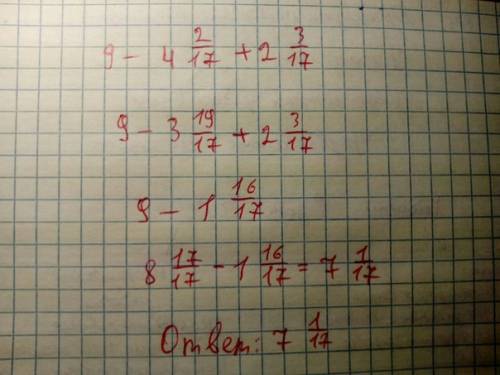 9 - 4 2/17 + 2 3/17
9 - 3 19/17 + 2 3/17
9 - 1 16/17
8 17/17 - 1 16/17 = 7 1/17
Ответ: 7 1/17